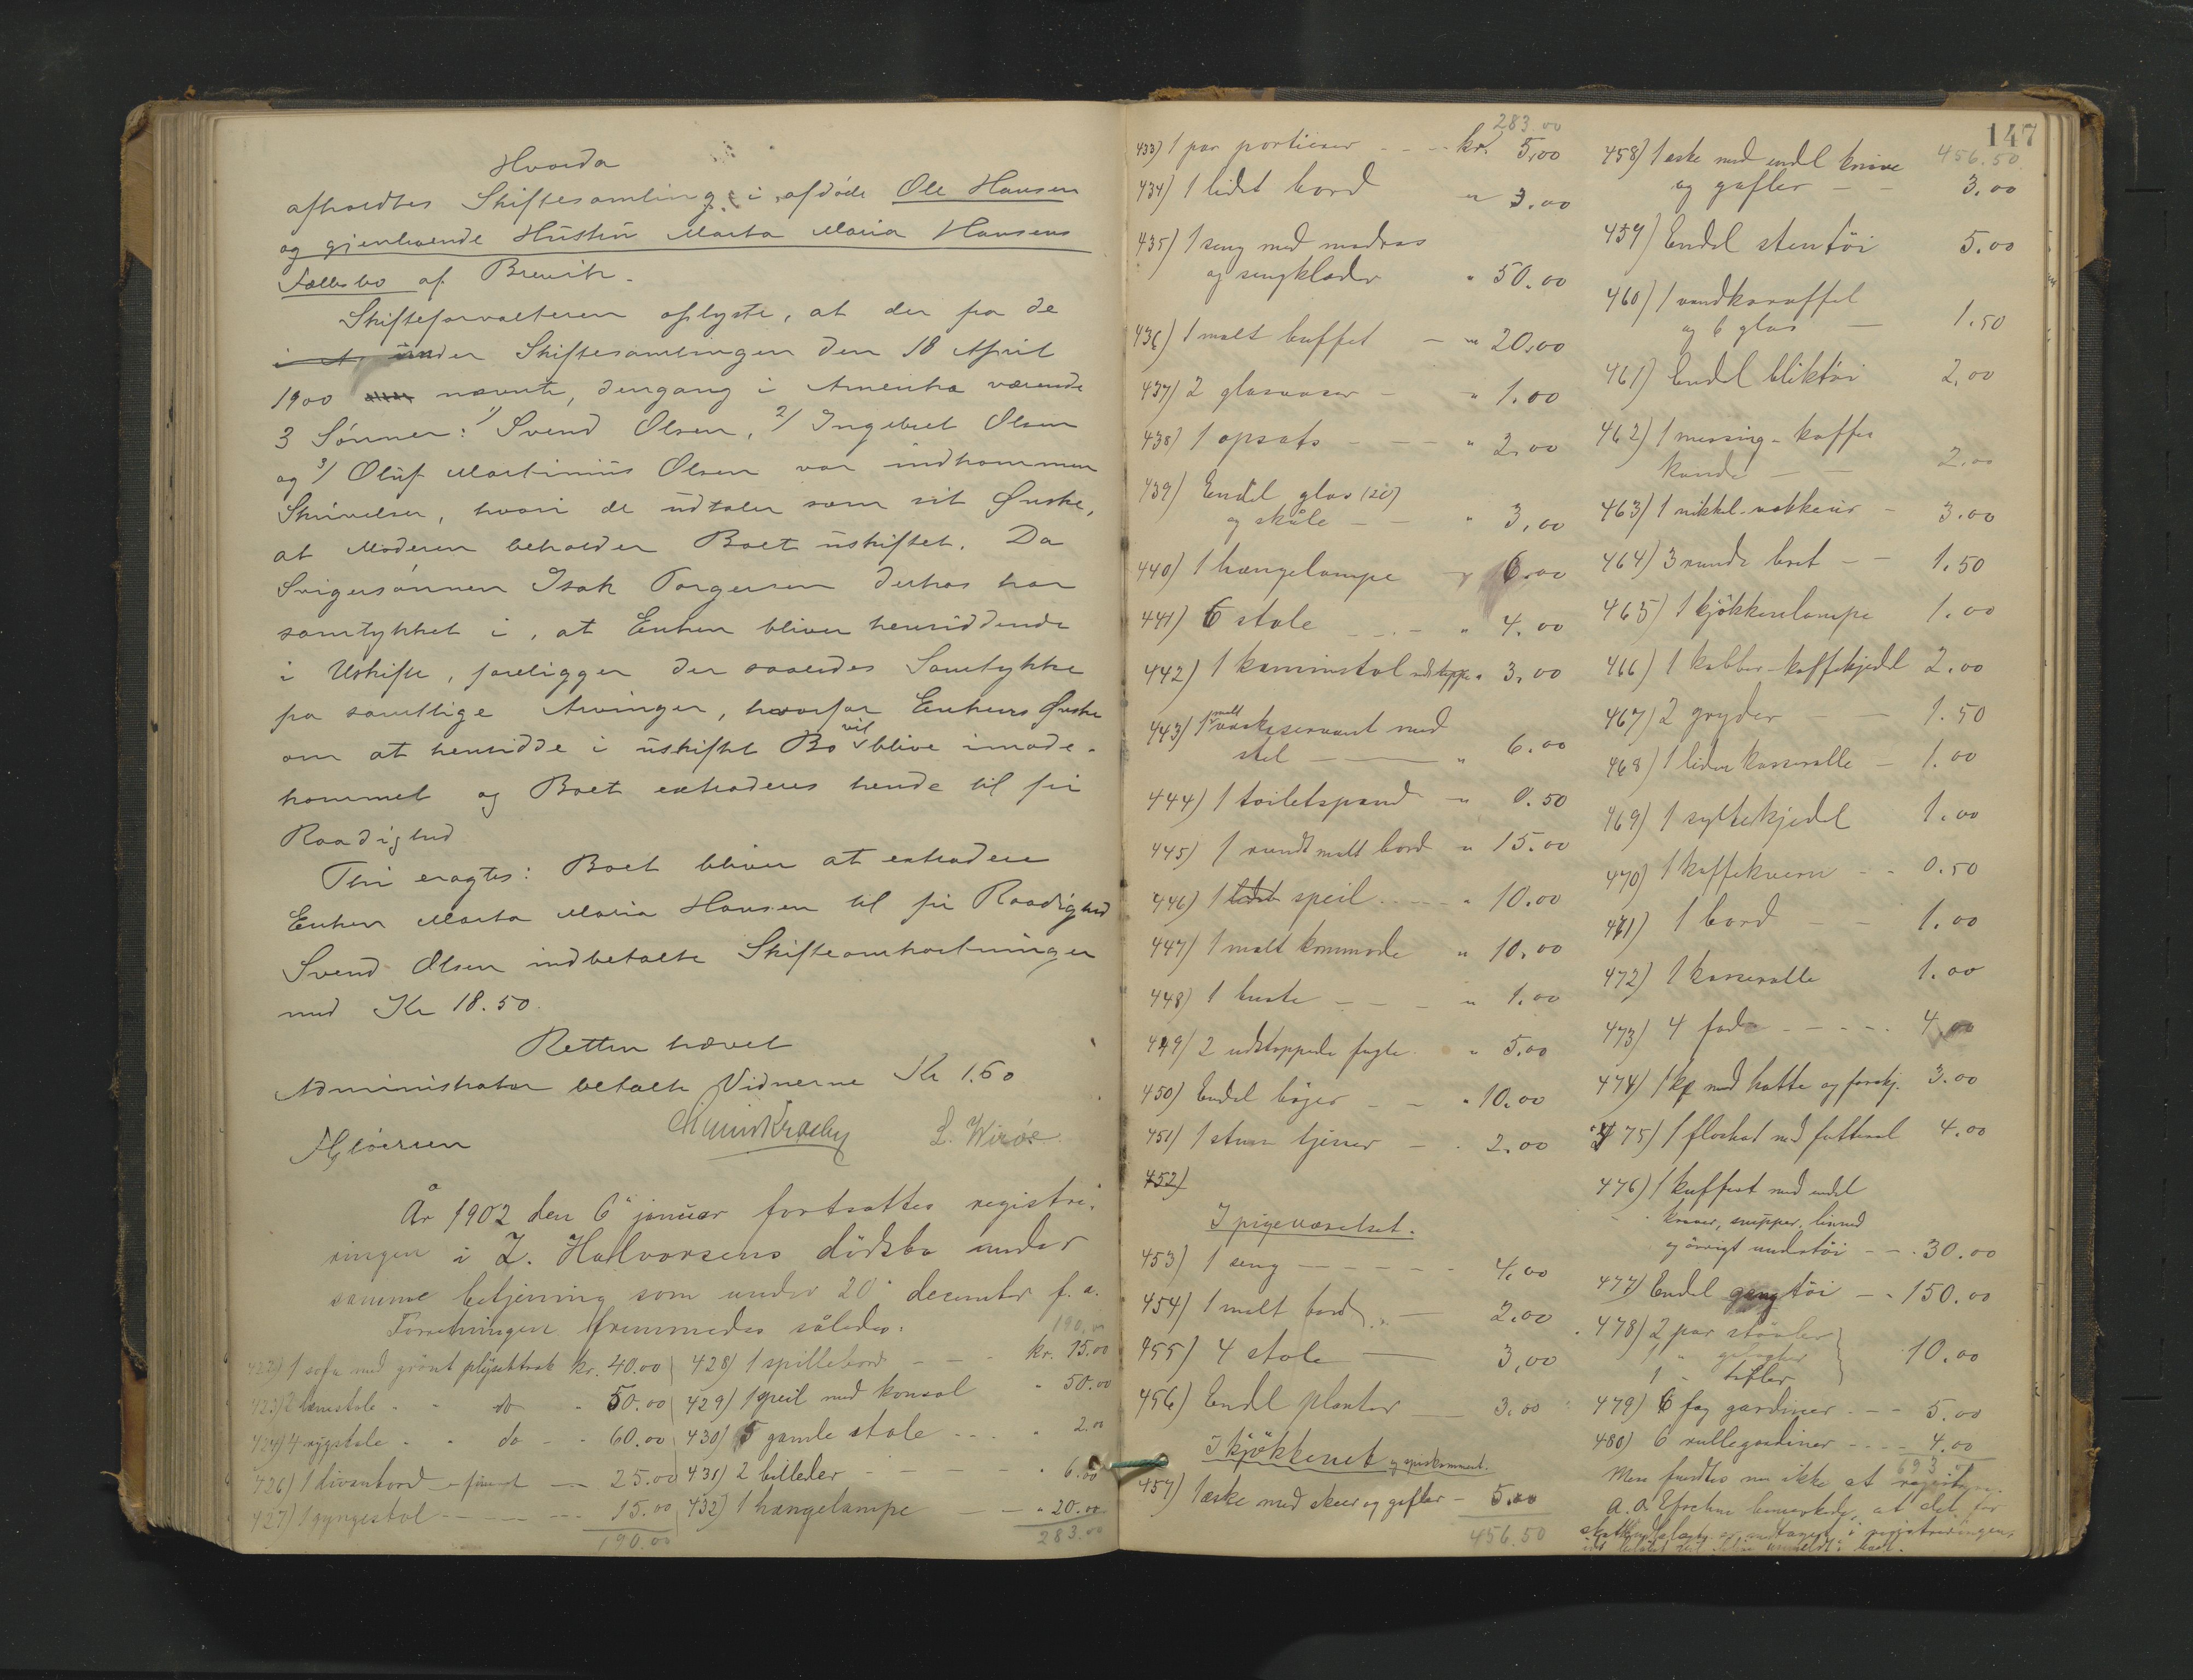 Hvorda
afholdtes Skiftesamling i afdøde Ole Hansen
og gjenlevende Hustru Marta Maria Hansens
Fællesbo af Brevik.
Skifteforvalteren oplyste, at der fra de
under Skiftesamlingen den 18 April
1900 nævnte, dengang i Amerika værende
3 Sønner: 1) Svend Olsen, 2) Ingebret Olsen
og 3) Oluf Martinius Olsen var indkommen
Skrivelser, hvori de udtaler som sit Ønske,
at Moderen beholder Boet uskiftet. Da
Svigersønnen Isak Torgersen derhos har
samtykket i, at Enken bliver hensiddende
i Uskifte, foreligger der saaledes Samtykke
fra samtlige Arvinger, hvorfor Enkens Ønske
om at hensidde i uskiftet Bo vil blive imøde-
kommet og Boet extraderes hende til fri
Raadighed
Thi eragtes: Boet bliver at extradere
Enken Marta Maria Hansen til fri Raadighed
Svend Olsen indbetalte Skifteomkostninger
med Kr 18.50.
Retten hævet
Administrator betalte Vidnerne Kr 1.60
L. Wirøe
År 1902 den 6 januar fortsattes registre-
ringen i Z. Halvorsens dødsbo under
samme betjening som under 20 december f. a.
Forretningen fremmedes således.
190,00
422) 1 sofa med grønt plyschtræk kr. 40.00
423) 2 lænestole - - do - 50.00
424) 4 rygstole - - do - - 60.00
426) 1 divanbord - 25.00
427) 1 gyngestol - - - 15.00
190.00
428) 1 spillebord - - - kr. 15.00
429) 1 speil med konsol " 50.00
430) 5 gamle stole - - - " 2.00
431) 2 billeder - - - - " 6.00
432) 1 hængelampe - - " 20.00
283.00
283.00
433) 1 par portierer - - - kr. 5,00
434) 1 lidet bord " 3.00
435) 1 seng med madras
og sengklæder " 50.00
436) 1 malt buffet - " 20,00
437) 2 glasvaser - " 1.00
438) 1 opsats - - - " 2,00
439) Endel glas
og skåle - - " 3,00
440) 1 hængelampe " 6.00
441) 6 stole - - - " 4.00
442) 1 kaminstol " 3,00
443) 1 malt vaskeservant med
stel - - " 6.00
444) 1 toiletspand " 0.50
445) 1 rundt malt bord " 15.00
446) 1 lidet speil - - - " 10.00
447) 1 malt kommode " 10.00
448) 1 buste - - - " 1.00
449) 2 udstoppede fugle " 5.00
450) Endel bøger - - " 10.00
451) 1 stum tjener - " 2.00
452)
I pigeværelset.
453) 1 seng - - - - - 4,00
454) 1 malt bord - 2.00
455) 4 stole - 3,00
456) Endel planter - 3.00
I kjøkkenet og spiskammeret.
457) 1 æske med skeer og gafler - 5.00
456.50
147
456.50
458) 1 eske med endel knive
og gafler - - 3.00
459) Endel stentøi 5.00
460) 1 vandkaraffel
og 6 glas - 1.50
461) Endel bliktøi 2,00
462) 1 messing-kaffe
kande - - 2.00
463) 1 nikkel - 3.00
464) 3 runde bret - - 1.50
465) 1 kjøkkenlampe 1.00
466) 1 kobber-kaffekjedel 2.00
467) 2 gryder - - 1.50
468) 1 liden kasserolle - 1.00
469) 1 syltekjedel 1.00
470) 1 kaffekvern - - 0.50
471) 1 bord - - 1.00
472) 1 kasserolle 1.00
473) 4 fade - - - - 4,00
474) 1 med hatte og forskj. 3.00
475) 1 floshat med futteral 4.00
476) 1 kuffert med endel
kraver, snipper, linned
og øvrigt undertøi - - 30.00
477) Endel gangtøi - - 150.00
478) 2 par støvler
1 " galoscher
1 - tøfler 10.00
479) 6 fag gardiner - - - 5.00
480) 6 rullegardiner - - - - 4.00
693
Mere fandtes nu ikke at registrere.
bemærkede, at det for